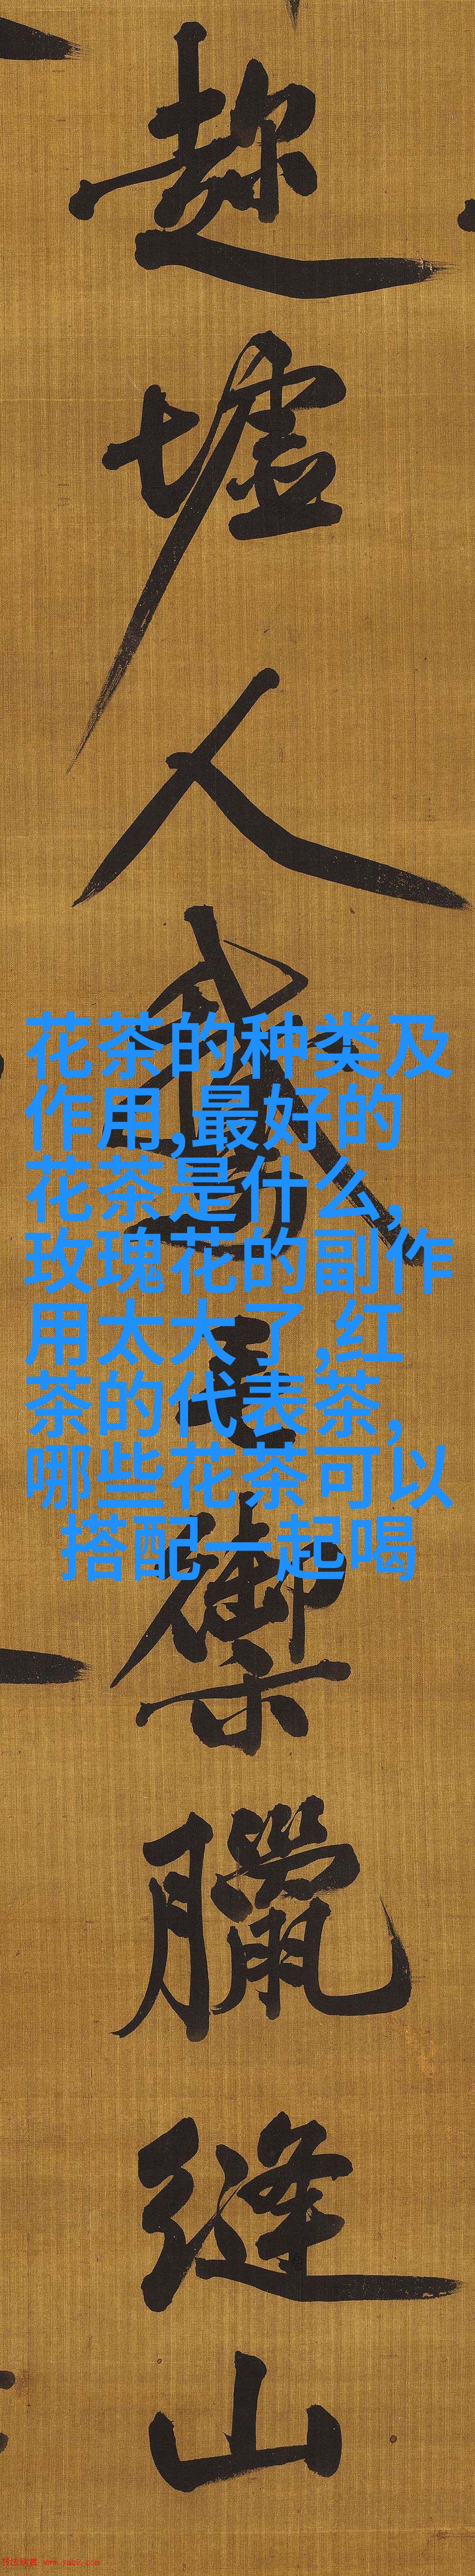 趂墟人
毛御臘縫山
花茶的种类及
作用,最好的
花茶是什么,
玫瑰花的副作
用太大了,红
茶的代表茶,
哪些花茶可以
搭配一起喝